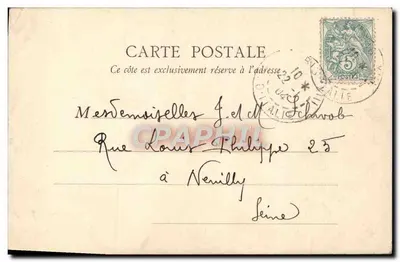 CARTE POSTALE
Ce côté est exclusivement réservé à l'adresse
Mesdemoiselles J. et M. Schwob
CPAPHIL
Rue Louis Philippe 25
à Neuilly
Seine